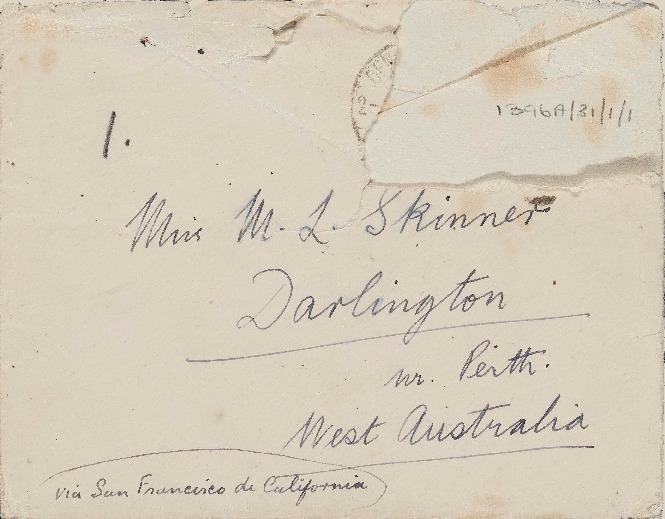 1396A/31/1/1
1.
Miss M. L. Skinner
Darlington
nr. Perth.
West Australia
via San Francisco de California